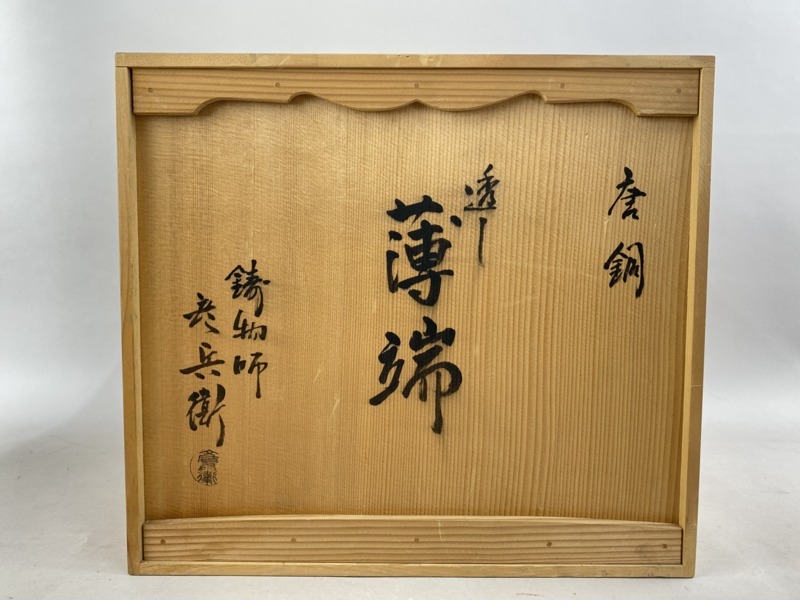 唐銅
透し
薄端
鋳物師
彦兵衛